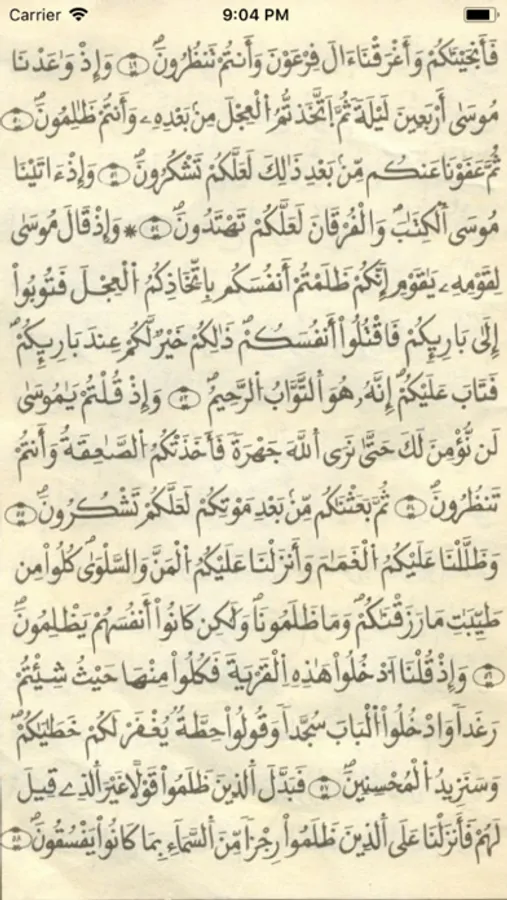 Carrier 9:04 PM
فَأَنجَيْنَٰكُمْ وَأَغْرَقْنَا ءَالَ فِرْعَوْنَ وَأَنتُمْ تَنظُرُونَ وَإِذْ وَٰعَدْنَا
مُوسَىٰ أَرْبَعِينَ لَيْلَةً ثُمَّ اَتَّخَذتُّمُ اُلْعِجْلَ مِنۢ بَعْدِهِۦ وَأَنتُمْ ظَٰلِمُونَ
ثُمَّ عَفَوْنَا عَنكُم مِّنۢ بَعْدِ ذَٰلِكَ لَعَلَّكُمْ تَشْكُرُونَ وَإِذَ ءَاتَيْنَا
مُوسَى اَلْكِتَٰبَ وَالْفُرْقَانَ لَعَلَّكُمْ تَهْتَدُونَ * وَإِذْ قَالَ مُوسَىٰ
لِقَوْمِهِۦ يَٰقَوْمِ إِنَّكُمْ ظَلَمْتُمْ أَنفُسَكُم بِاتِّخَاذِكُمُ اُلْعِجْلَ فَتُوبُوا۟
إِلَىٰ بَارِئِكُمْ فَاقْتُلُوا۟ أَنفُسَكُمْ ذَٰلِكُمْ خَيْرٌ لَّكُمْ عِندَ بَارِئِكُمْ
فَتَابَ عَلَيْكُمْ إِنَّهُۥ هُوَ اَلتَّوَّابُ اُلرَّحِيمُ وَإِذْ قُلْتُمْ يَٰمُوسَىٰ
لَن نُّؤْمِنَ لَكَ حَتَّىٰ نَرَى اَللَّهَ جَهْرَةً فَأَخَذَتْكُمُ اُلصَّٰعِقَةُ وَأَنتُمْ
تَنظُرُونَ ثُمَّ بَعَثْنَٰكُم مِّنۢ بَعْدِ مَوْتِكُمْ لَعَلَّكُمْ تَشْكُرُونَ
وَظَلَّلْنَا عَلَيْكُمُ اُلْغَمَٰمَ وَأَنزَلْنَا عَلَيْكُمُ اُلْمَنَّ وَالسَّلْوَىٰ كُلُوا۟ مِن
طَيِّبَٰتِ مَا رَزَقْنَٰكُمْ وَمَا ظَلَمُونَا وَلَٰكِن كَانُوا۟ أَنفُسَهُمْ يَظْلِمُونَ
وَإِذْ قُلْنَا اَدْخُلُوا۟ هَٰذِهِ اِلْقَرْيَةَ فَكُلُوا۟ مِنْهَا حَيْثُ شِئْتُمْ
رَغَداً وَادْخُلُوا۟ اُلْبَابَ سُجَّداً وَقُولُوا۟ حِطَّةٌ يُغْفَرْ لَكُمْ خَطَٰيَٰكُمْ
وَسَنَزِيدُ اُلْمُحْسِنِينَ فَبَدَّلَ اَلذِينَ ظَلَمُوا۟ قَوْلًا غَيْرَ اَلذِے قِيلَ
لَهُمْ فَأَنزَلْنَا عَلَى اَلذِينَ ظَلَمُوا۟ رِجْزاً مِّنَ اَلسَّمَآءِ بِمَا كَانُوا۟ يَفْسُقُونَ